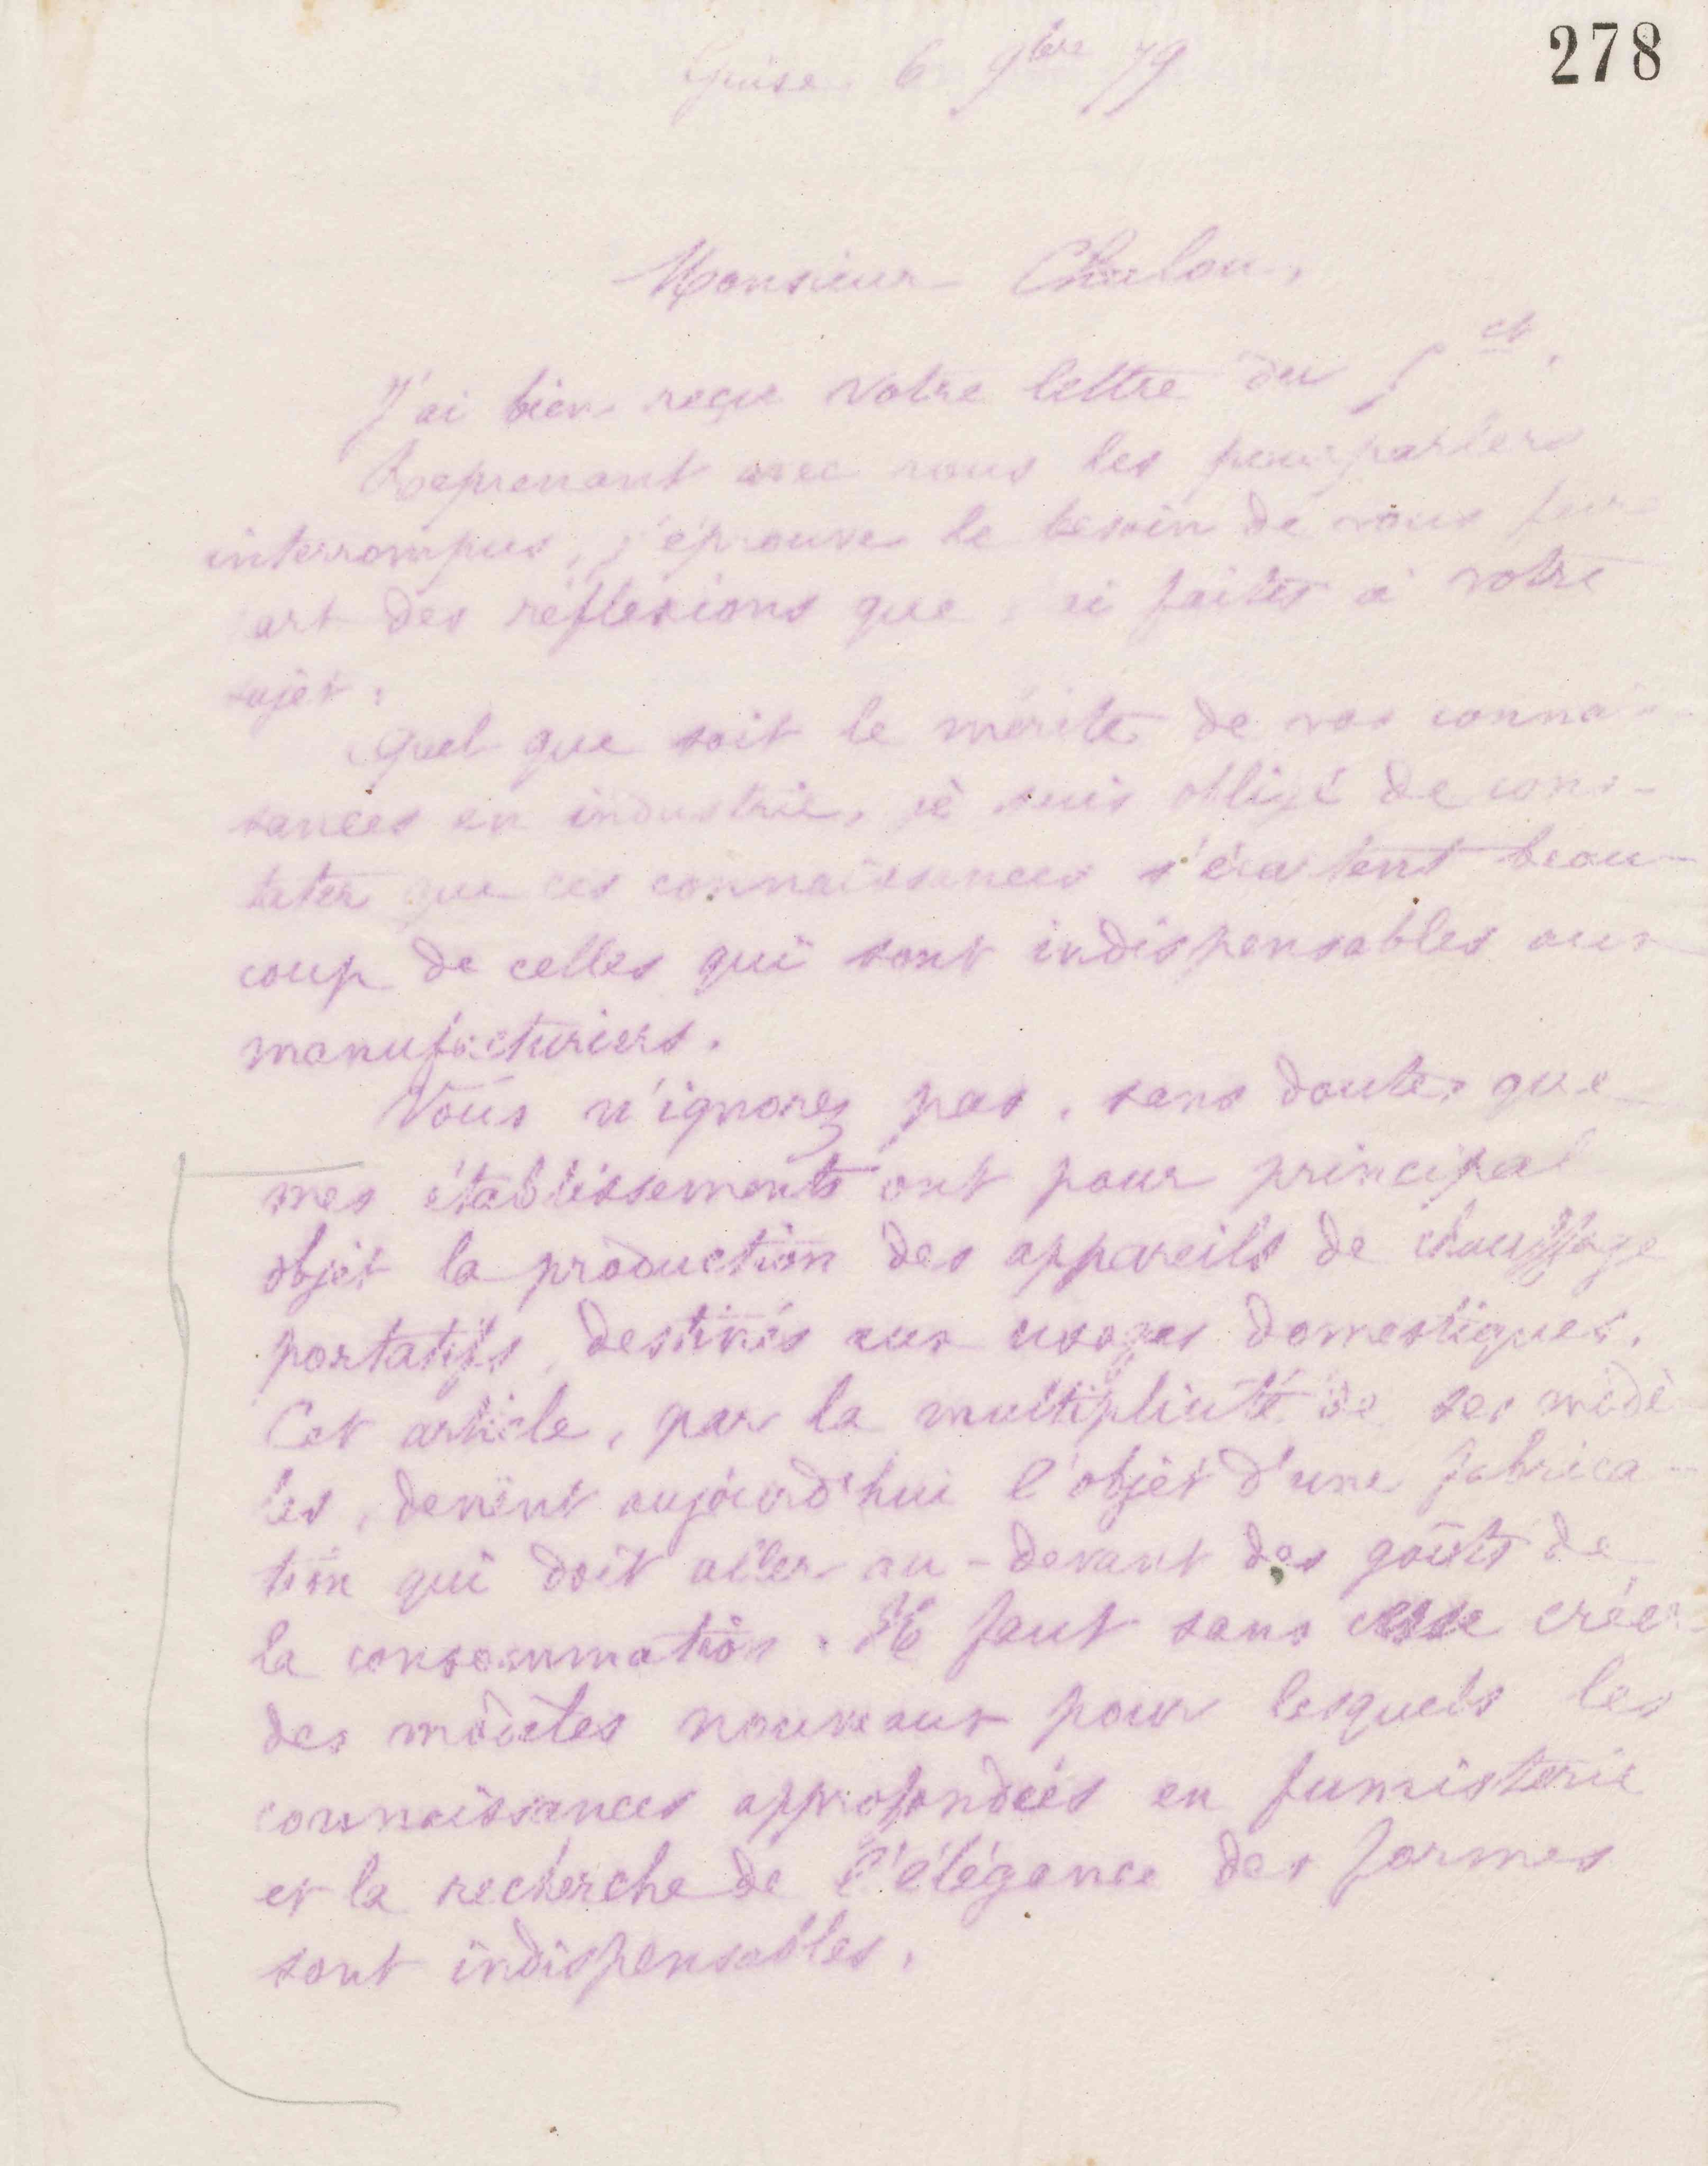 278
Guise 6 9bre 79
Monsieur Chalon,
J'ai bien reçu votre lettre du 5 ct.
Reprenant avec vous les pourparlers
interrompus, j'éprouve le besoin de vous fai-
part des réflexions que j'ai faites à votre
sujet.
Quel que soit le mérite de vos connai-
sances en industrie, je suis obligé de cons-
tater que ces connaissances s'écartent beau-
coup de celles qui sont indispensables aux
manufacturiers.
Vous n'ignorez pas, sans doute, que
mes établissements ont pour principal
objet la production des appareils de chauffage
portatifs, destinés aux usages domestiques.
Cet article, par la multiplicité de ses modè-
les, devient aujourd'hui l'objet d'une fabrica-
tion qui doit aller au-devant des goûts de
la consommation. Il faut sans cesse créer
des modèles nouveaux pour lesquels les
connaissances approfondies en fumisterie
et la recherche de l'élégance des formes
sont indispensables.